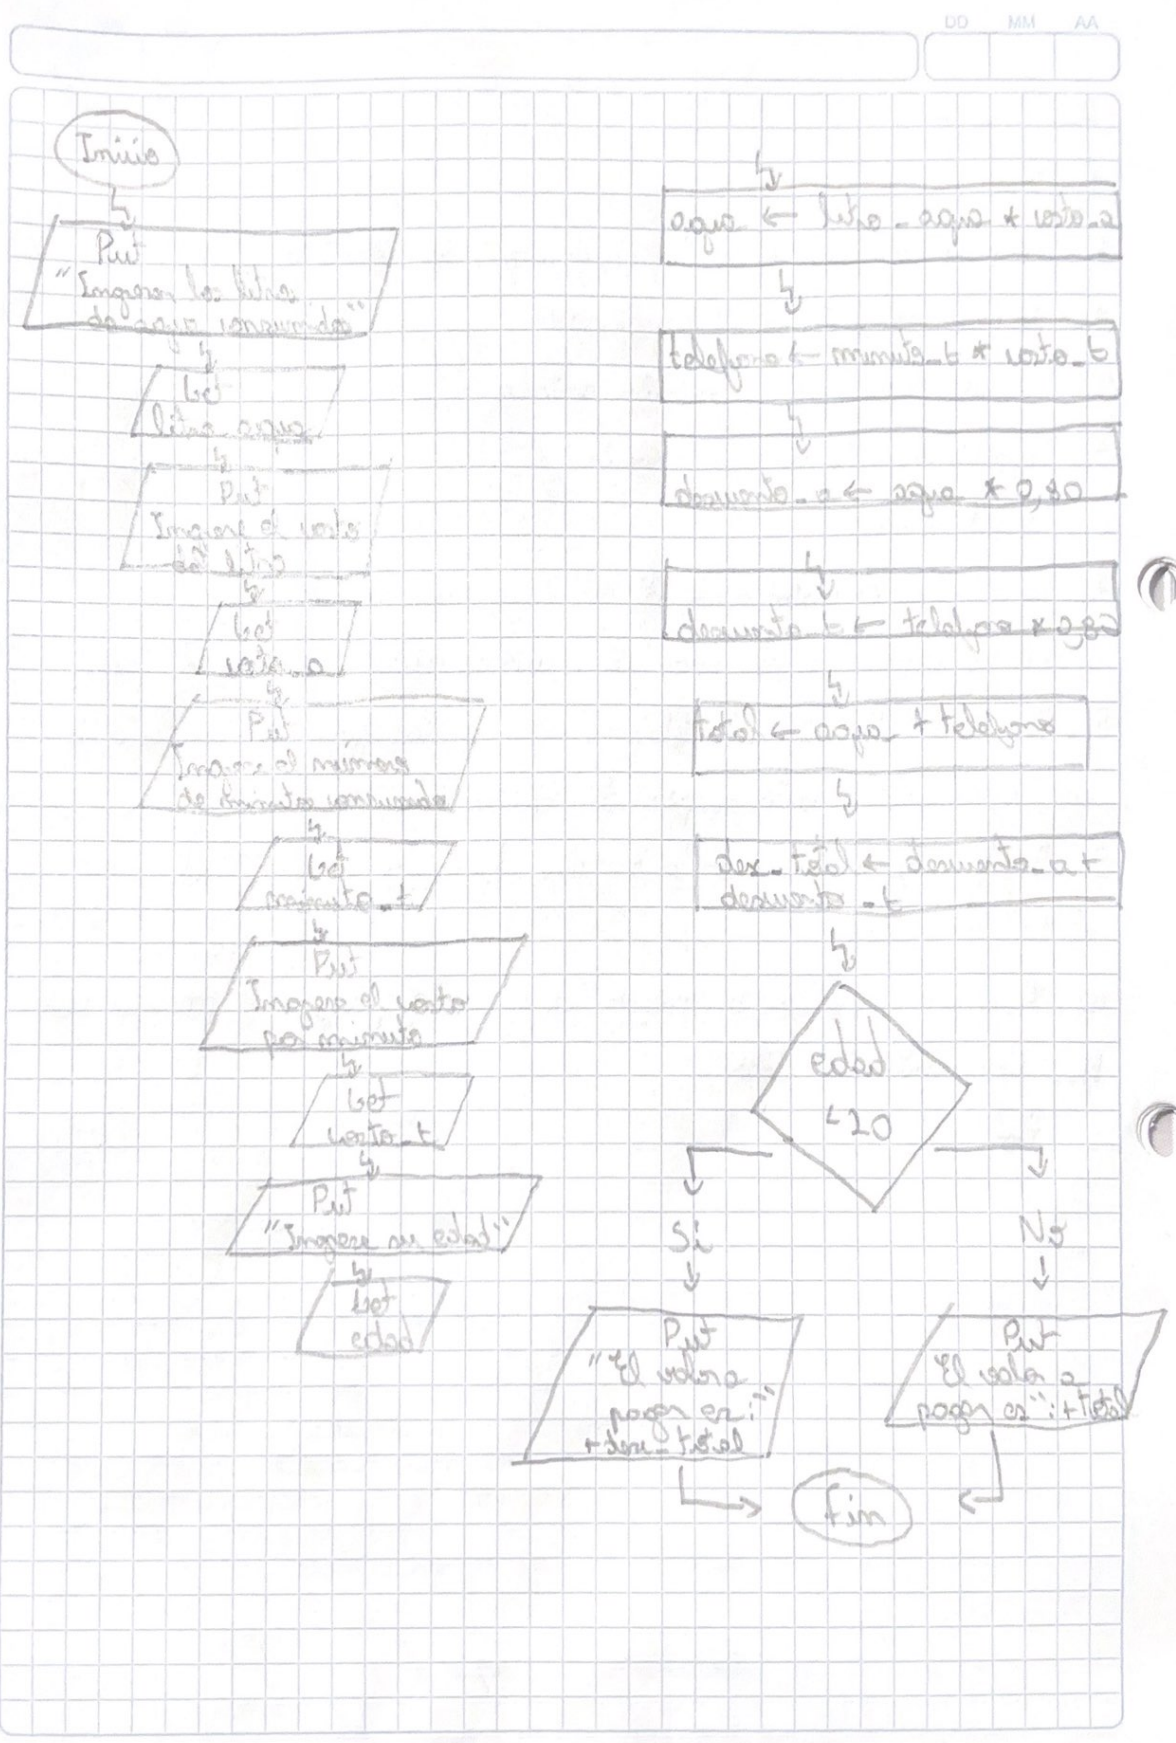 DD MM AA
Inicio
Put
"Ingrese los litros
de agua consumidos"
Get
litro_agua
Put
Ingrese el costo
del litro
Get
costo_a
Put
Ingrese el número
de minutos consumidos
Get
minuto_t
Put
Ingrese el costo
por minuto
Get
costo_t
Put
"Ingrese su edad"
Get
edad
agua ← litro_agua * costo_a
telefono ← minuto_t * costo_t
descuento_a ← agua *
descuento_t ← telefono * 0,80
total ← agua + telefono
des_total ← descuento_a +
descuento_t
edad
<20
Si
No
Put
"El valor a
pagar es:"
+des_total
Put
"El valor a
pagar es": +total
Fin